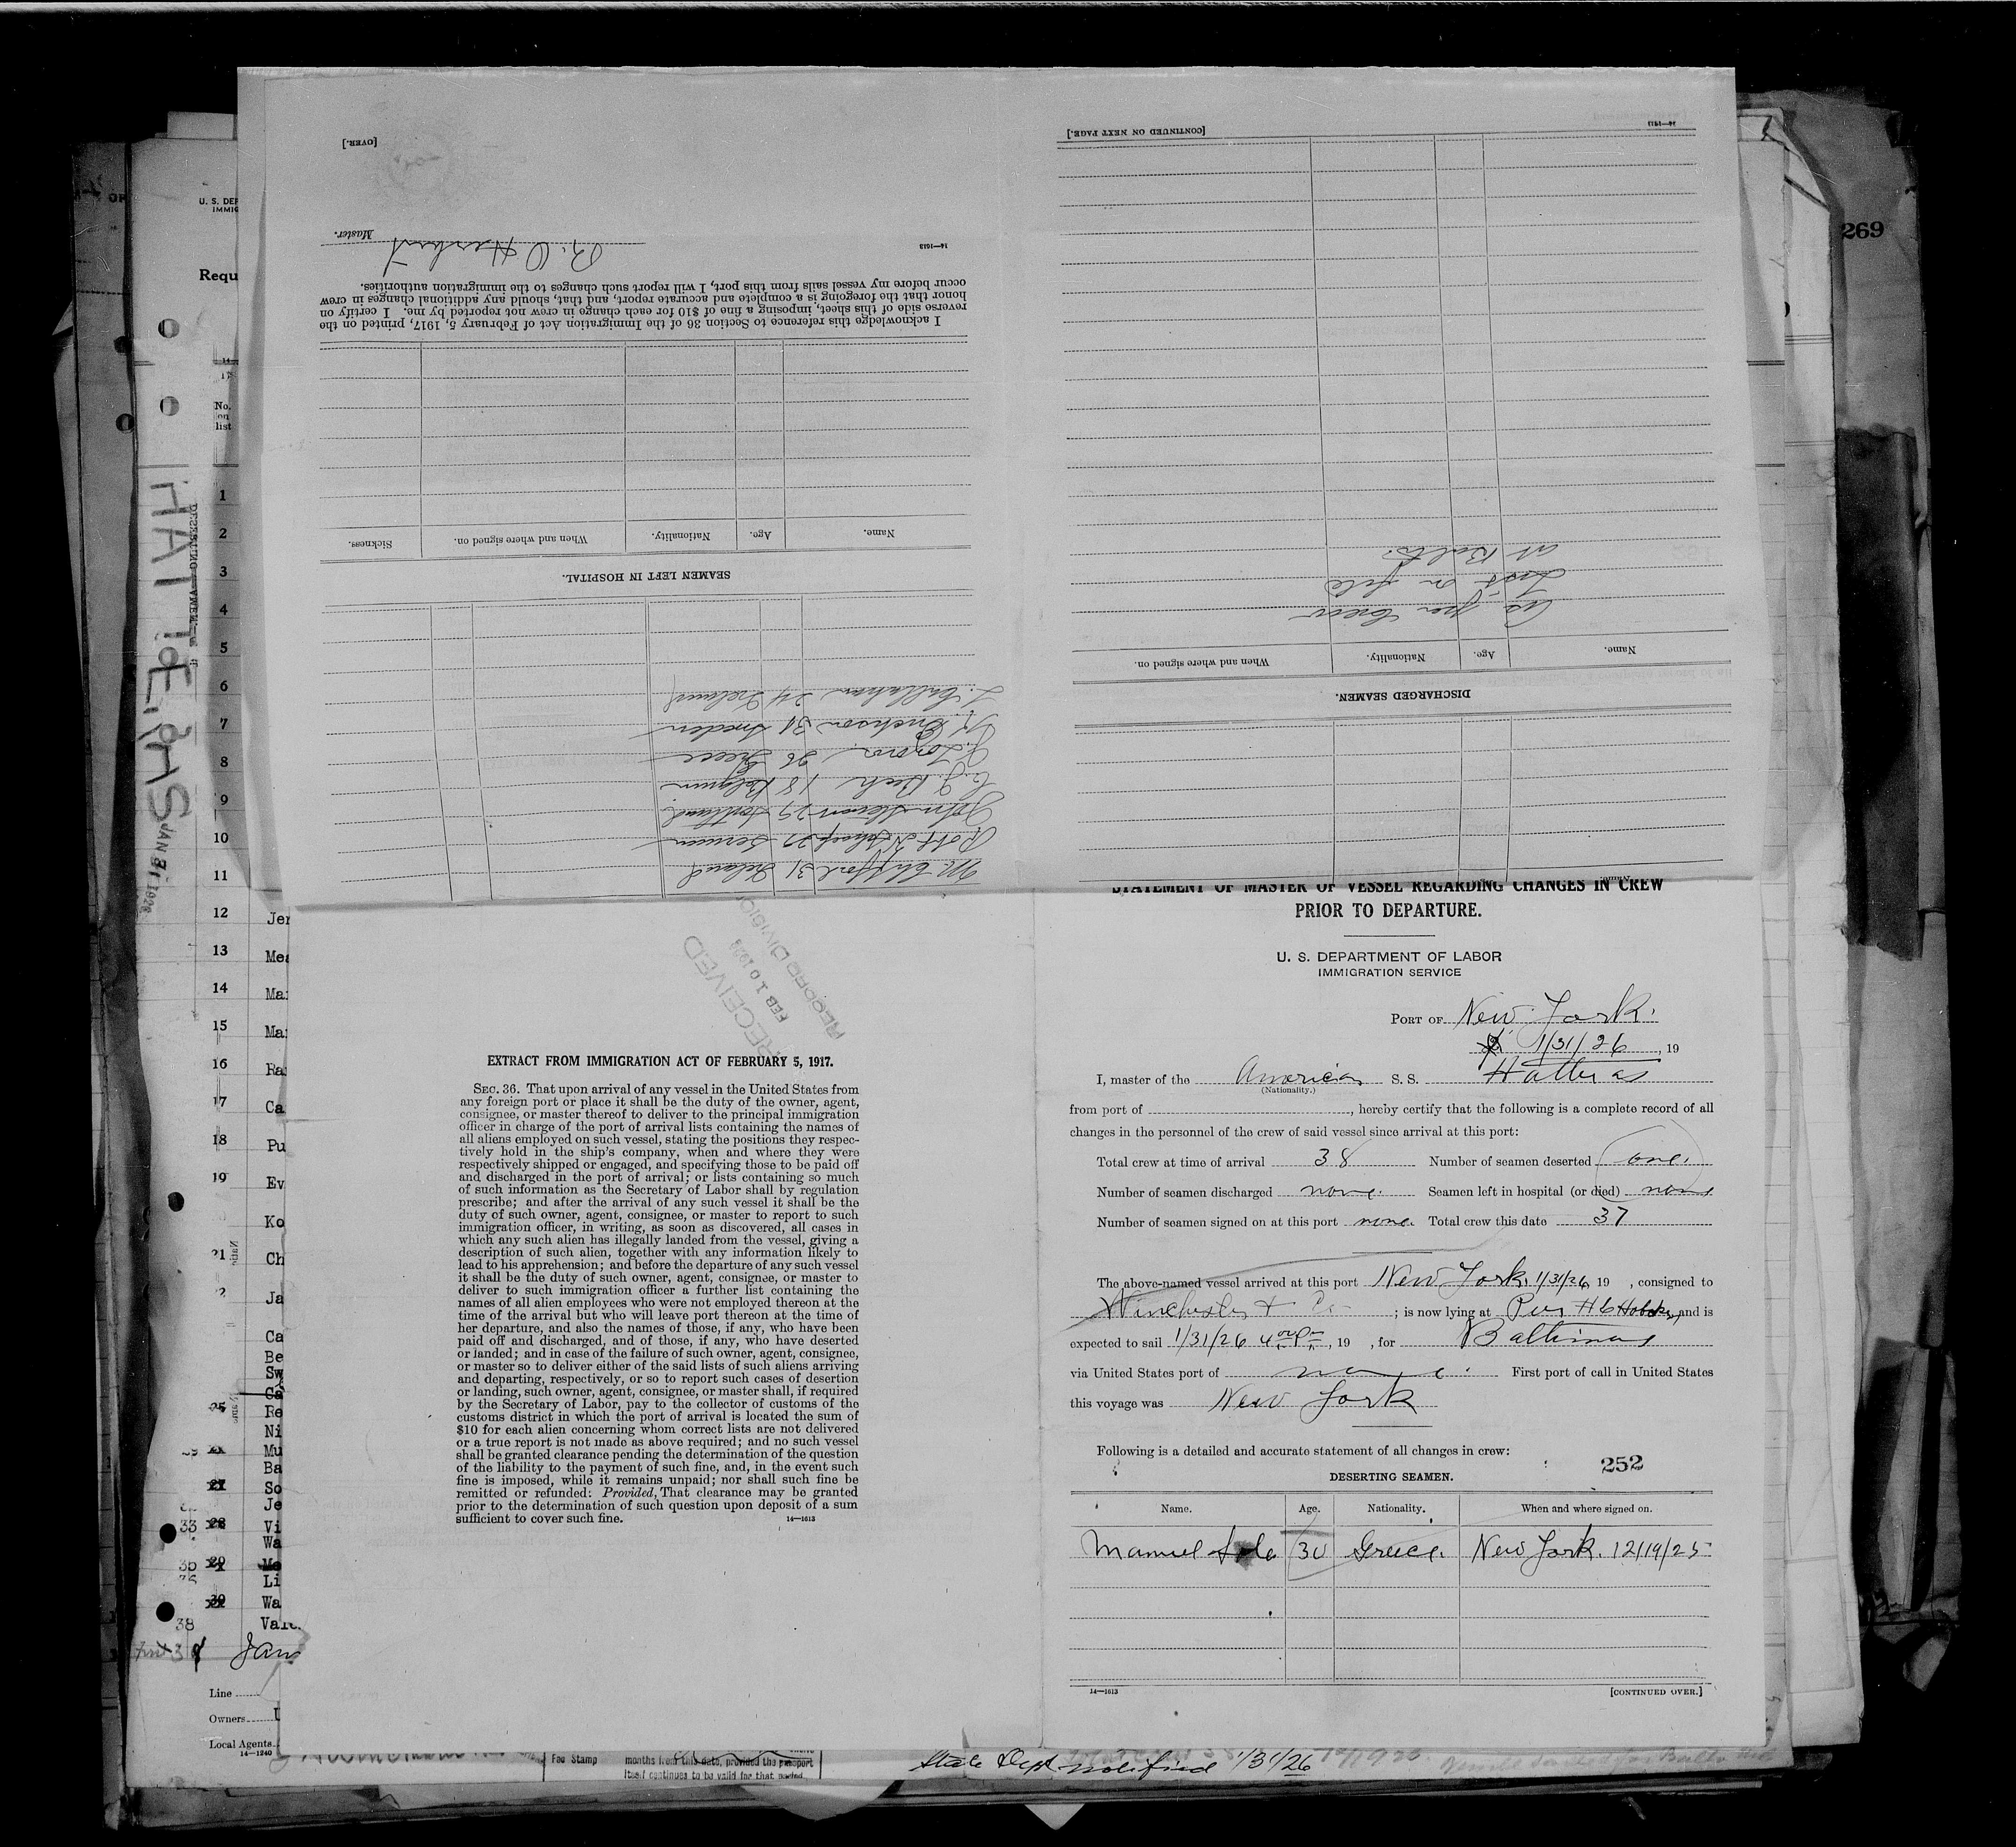 [OVER.]
Master.
14—1613
I acknowledge this reference to Section 36 of the Immigration Act of February 5, 1917, printed on the
reverse side of this sheet, imposing a fine of $10 for each change in crew not reported by me. I certify on
honor that the foregoing is a complete and accurate report, and that, should any additional changes in crew
occur before my vessel sails from this port, I will report such changes to the immigration authorities.
Name. Age. Nationality. When and where signed on. Sickness.
SEAMEN LEFT IN HOSPITAL.
24 Ireland
Sweden
26 Greece
18 Belgium
John 29 Scotland
29 German
31 Ireland
[CONTINUED ON NEXT PAGE.]
14—1613
As per Crew
List on file
at Balto.
Name. Age. Nationality. When and where signed on.
DISCHARGED SEAMEN.
269
U. S. DEP
IMMIG
Requ
No.
on
list
HATTERAS
JAN 31 1926
1
2
3
4
5
6
7
8
9
10
11
12 Jer
13 Mea
14 Mar
15 Mar
16 Ra
17 Ca
18 Pu
19 Ev
Ko
21 Ch
Ja
Ca
Be
Sw
Ca
25 Re
Ni
Mu
Ba
27 So
Je
33 28 Vi
Wa
35 29 Mo
Li
30 Wa
38 Vale
Line
Owners
Local Agents
14—1240
RECEIVED
FEB 10 1926
RECORD DIVISION
EXTRACT FROM IMMIGRATION ACT OF FEBRUARY 5, 1917.
SEC. 36. That upon arrival of any vessel in the United States from
any foreign port or place it shall be the duty of the owner, agent,
consignee, or master thereof to deliver to the principal immigration
officer in charge of the port of arrival lists containing the names of
all aliens employed on such vessel, stating the positions they respec-
tively hold in the ship's company, when and where they were
respectively shipped or engaged, and specifying those to be paid off
and discharged in the port of arrival; or lists containing so much
of such information as the Secretary of Labor shall by regulation
prescribe; and after the arrival of any such vessel it shall be the
duty of such owner, agent, consignee, or master to report to such
immigration officer, in writing, as soon as discovered, all cases in
which any such alien has illegally landed from the vessel, giving a
description of such alien, together with any information likely to
lead to his apprehension; and before the departure of any such vessel
it shall be the duty of such owner, agent, consignee, or master to
deliver to such immigration officer a further list containing the
names of all alien employees who were not employed thereon at the
time of the arrival but who will leave port thereon at the time of
her departure, and also the names of those, if any, who have been
paid off and discharged, and of those, if any, who have deserted
or landed; and in case of the failure of such owner, agent, consignee,
or master so to deliver either of the said lists of such aliens arriving
and departing, respectively, or so to report such cases of desertion
or landing, such owner, agent, consignee, or master shall, if required
by the Secretary of Labor, pay to the collector of customs of the
customs district in which the port of arrival is located the sum of
$10 for each alien concerning whom correct lists are not delivered
or a true report is not made as above required; and no such vessel
shall be granted clearance pending the determination of the question
of the liability to the payment of such fine, and, in the event such
fine is imposed, while it remains unpaid; nor shall such fine be
remitted or refunded: Provided, That clearance may be granted
prior to the determination of such question upon deposit of a sum
sufficient to cover such fine.
14—1613
STATEMENT OF MASTER OF VESSEL REGARDING CHANGES IN CREW
PRIOR TO DEPARTURE.
U. S. DEPARTMENT OF LABOR
IMMIGRATION SERVICE
PORT OF New York.
1/31/26, 19
I, master of the American S. S. Hatteras
(Nationality.)
from port of , hereby certify that the following is a complete record of all
changes in the personnel of the crew of said vessel since arrival at this port:
Total crew at time of arrival 38 Number of seamen deserted one.
Number of seamen discharged none. Seamen left in hospital (or died) none
Number of seamen signed on at this port none. Total crew this date 37
The above-named vessel arrived at this port New York 1/31/26, 19 , consigned to
Winchester & Co ; is now lying at Pier #6 Hoboken, and is
expected to sail 1/31/26 4 00 Pm, 19 , for Baltimore
via United States port of none. First port of call in United States
this voyage was New York
Following is a detailed and accurate statement of all changes in crew:
252
DESERTING SEAMEN.
Name. Age. Nationality. When and where signed on.
Manuel 30 Greece. New York. 12/19/25
14—1613
[CONTINUED OVER.]
Fee Stamp
months from this date, provided the passport
itself continues to be valid for that period.
State Dept notified 1/31/26